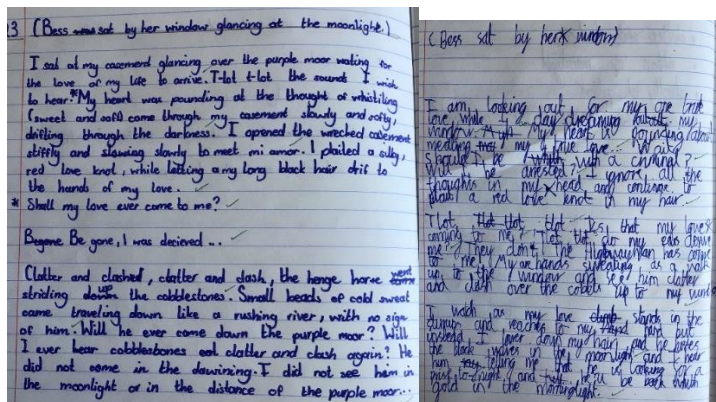 3 (Bess sat by her window glancing at the moonlight.)
I sat at my casement glancing over the purple moor waiting for
the love of my life to arrive. T-lot t-lot the sound I wish
to hear.* My heart was pounding at the thought of whistiling
(sweet and soft) come through my casement slowly and softly,
drifting through the darkness. I opened the wrecked casement
stiffly and slowing slowly to meet mi amor. I plaited a silky,
red love knot, while letting a my long black hair drif to
the hands of my love.
* Shall my love ever come to me?
Begone Be gone, I was decieved...
Clatter and clashed, clatter and clash, the henge horse went
striding down the cobblestones. Small beads of cold sweat
came traveling down like a rushing river, with no sign
of him. Will he ever come down the purple moor? Will
I ever hear cobblesbones clatter and clash again? He
did not come in the dawining. I did not see him in
the moonlight or in the distance of the purple moor...
(Bess sat by her window)
I am looking out for my one true
love, while I day dreaming my
window. My heart is pounding about
meating my true love.
Should I be with a criminal?
Will I be arrested? I ignore all the
thoughts in my head and continue to
plait a red love knot in my hair.
Tlot tlot, tlot. Yes, that my loves
coming to me? Tlot tlot do my ears decive
me? They don't. The Highwayman has come
to me! My are hands sweating as a walk
up to the window and see him clatter
and clash over the cobels up to my window
I wach as my love stands in the
and reaches to my hand but
instead I down my hair and he kisses
the black waves in the moonlight and I hear
him telling me that he is looking for a
to-night and he'll be back with
gold in the morninglight.